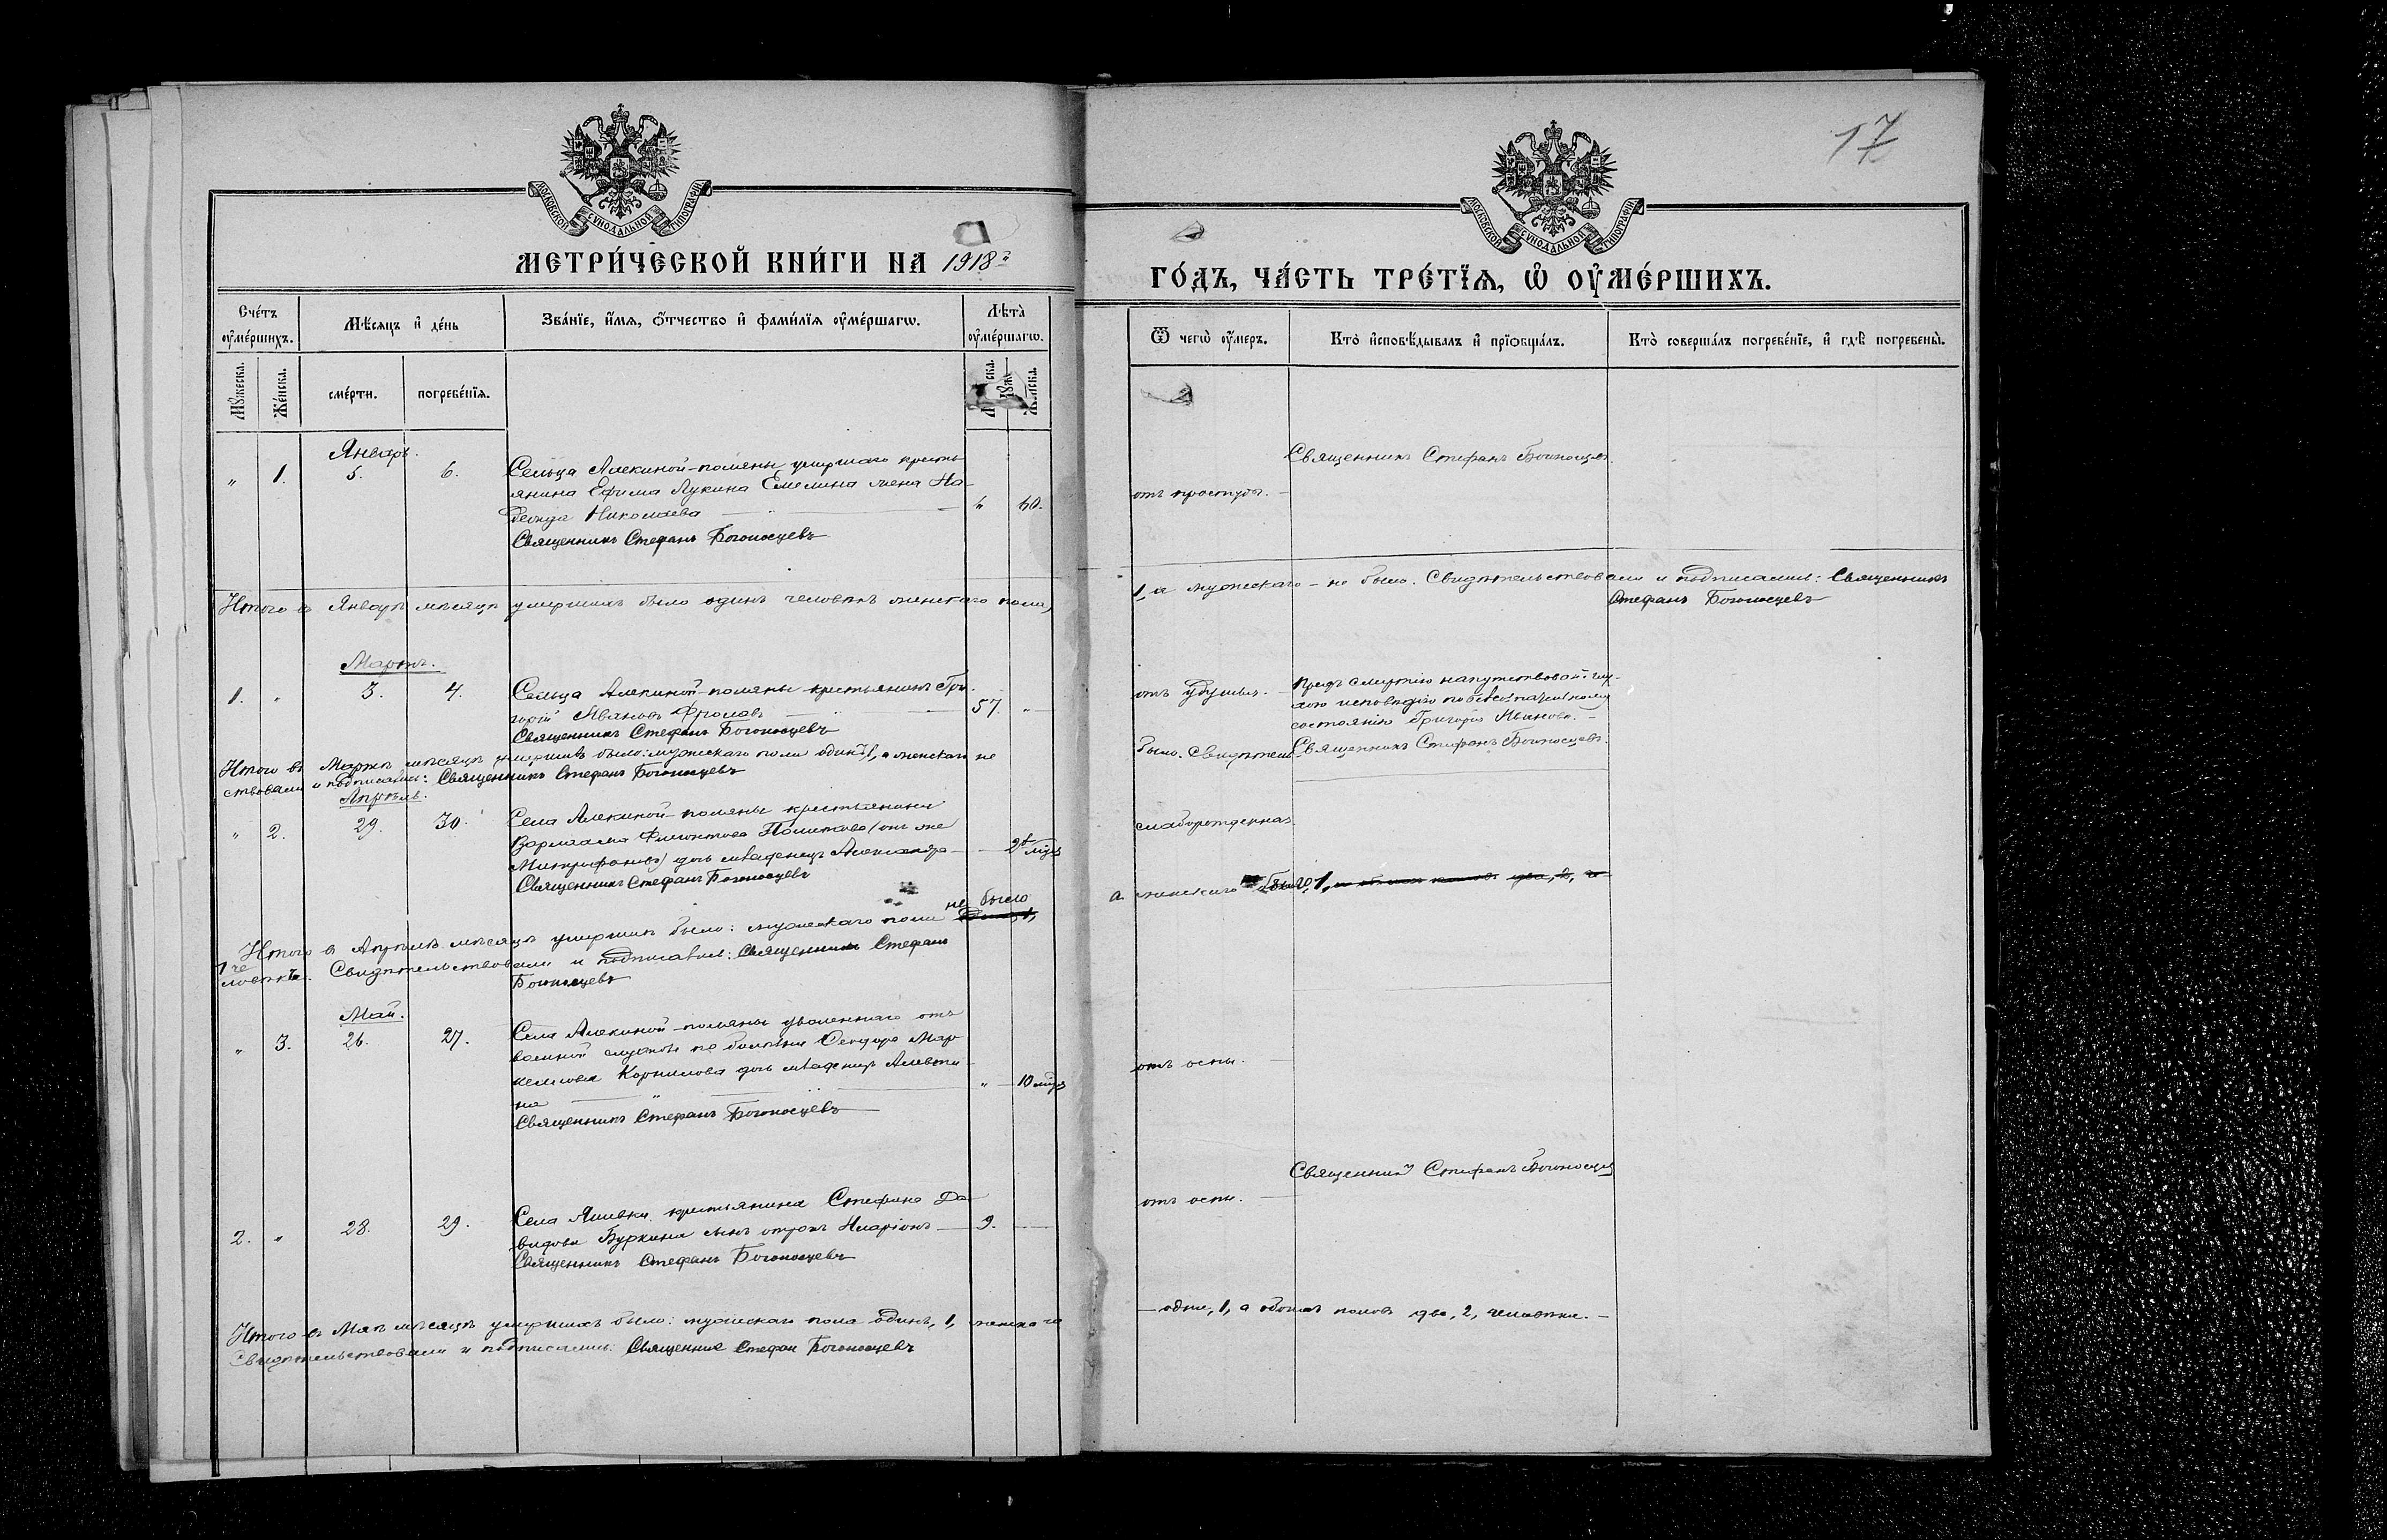 17
МОСКОВСКОЙ СУНОДАЛЬНОЙ ТИПОГРАФІИ
МОСКОВСКОЙ СУНОДАЛЬНОЙ ТИПОГРАФІИ
МЕТРИ́ЧЕСКОЙ КНИ́ГИ НА 1918й
ГО́ДЪ, ЧА́СТЬ ТРЕ́ТЇѦ, Ѡ҆ ОУ҆МЕ́РШИХЪ.
Сче́тъ оу҆ме́ршихъ.
Мѣ́сяцъ и҆ де́нь
Зва́нїе, и҆́мѧ, ѻ҆́тчество и҆ фами́лїѧ оу҆ме́ршагѡ.
Лѣ́та оу҆ме́ршагѡ.
Ѿ чегѡ̀ оу҆́меръ.
Кто̀ и҆сповѣ́дывалъ и҆ прїѡбща́лъ.
Кто̀ соверша́лъ погребе́нїе, и҆ гдѣ̀ погребены̀.
Мꙋ́жеска.
Же́нска.
сме́рти.
погребе́нїѧ.
Январь.
" 1. 5. 6. Сельца Алекиной-поляны умершаго кресть
янина Ефима Лукина Емелина жена На-
дежда Николаева " 60.
Священникъ Стефанъ Богоносцевъ
отъ простуды.
Священникъ Стефанъ Богоносцевъ
Итого въ Январѣ мѣсяцѣ умершихъ было одинъ человѣкъ женскаго пола,
1, а мужескаго - не было. Свидѣтельствовали и подписались: Священникъ
Стефанъ Богоносцевъ
Мартъ.
1. " 3. 4. Сельца Алекиной-поляны крестьянинъ Гри-
горій Ивановъ Фроловъ 57. "
Священникъ Стефанъ Богоносцевъ
отъ удушья.
Предъ смертію напутствовалъ
исповѣдію по
состоянію Григорія Иванова.
Священникъ Стефанъ Богоносцевъ.
Итого въ Мартѣ мѣсяцѣ умершихъ было: мужескаго пола одинъ, 1, а женскаго не
было. Свидѣтель
ствовали и подписались: Священникъ Стефанъ Богоносцевъ
Апрѣль.
" 2. 29. 30. Села Алекиной-поляны крестьянина
Варлаама (онъ же
Митрофановъ) дочь младенецъ Александра 2
Священникъ Стефанъ Богоносцевъ
слаборожденная.
Итого въ Апрѣлѣ мѣсяцѣ умершихъ было: мужескаго пола не было
а женскаго 1,
1 че
ловѣкъ. Свидѣтельствовали и подписались: Священникъ Стефанъ
Богоносцевъ
Май.
" 3. 26. 27. Села Алекиной-поляны уволеннаго отъ
военной службы по болѣзни Ѳеодора Мар-
келлова Корнилова дочь младенецъ Алевти-
на " 10 мцв
Священникъ Стефанъ Богоносцевъ
отъ оспы.
2. " 28. 29. Села крестьянина Стефана Да-
видова Буркина сынъ отрокъ Иларіонъ 9.
Священникъ Стефанъ Богоносцевъ
отъ оспы.
Священникъ Стефанъ Богоносцев
Итого въ Маѣ мѣсяцѣ умершихъ было: мужескаго пола одинъ, 1, женскаго
- одна, 1, а обоихъ половъ два, 2, человѣка. -
Свидѣтельствовали и подписались: Священник Стефан Богоносцевъ